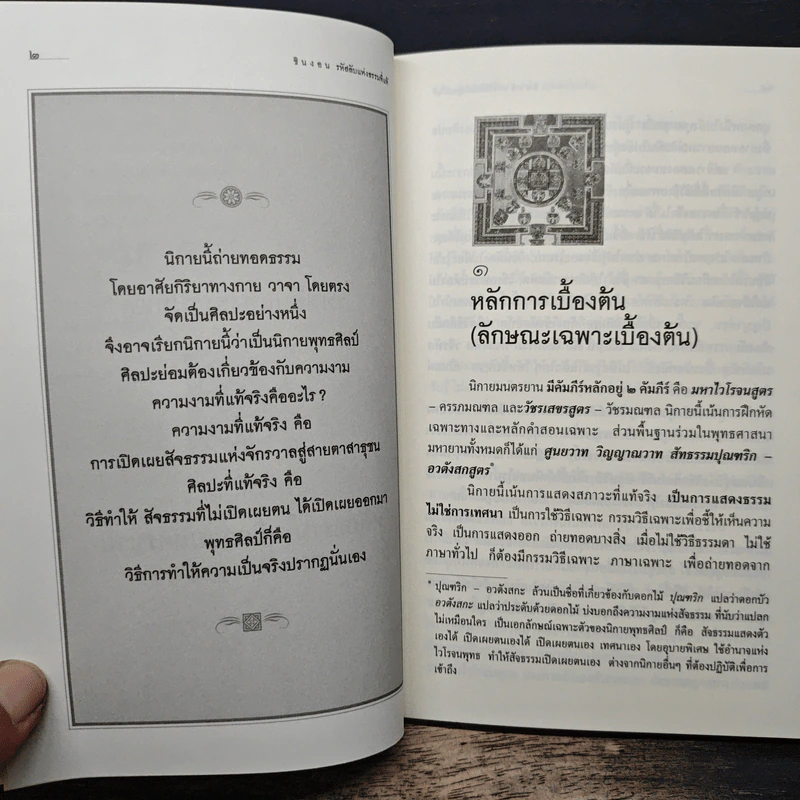 ๒
ชินงอน รหัสลับแห่งธรรม
นิกายนี้ถ่ายทอดธรรม
โดยอาศัยกิริยาทางกาย วาจา โดยตรง
จัดเป็นศิลปะอย่างหนึ่ง
จึงอาจเรียกนิกายนี้ว่าเป็นนิกายพุทธศิลป์
ศิลปะย่อมต้องเกี่ยวข้องกับความงาม
ความงามที่แท้จริงคืออะไร?
ความงามที่แท้จริง คือ
การเปิดเผยสัจธรรมแห่งจักรวาลสู่สายตาสาธุชน
ศิลปะที่แท้จริง คือ
วิธีทำให้ สัจธรรมที่ไม่เปิดเผยตน ได้เปิดเผยออกมา
พุทธศิลป์ก็คือ
วิธีการทำให้ความเป็นจริงปรากฏนั่นเอง
๑
หลักการเบื้องต้น
(ลักษณะเฉพาะเบื้องต้น)
นิกายมนตรยาน มีคัมภีร์หลักอยู่ ๒ คัมภีร์ คือ มหาไวโรจนสูตร
– ครรภมณฑล และวัชรเสขรสูตร – วัชรมณฑล นิกายนี้เน้นการฝึกหัด
เฉพาะทางและหลักคำสอนเฉพาะ ส่วนพื้นฐานร่วมในพุทธศาสนา
มหายานทั้งหมดก็ได้แก่ ศูนยวาท วิญญาณวาท สัทธรรมปุณฑริก –
อวตังสกสูตร*
นิกายนี้เน้นการแสดงสภาวะที่แท้จริง เป็นการแสดงธรรม
ไม่ใช่การเทศนา เป็นการใช้วิธีเฉพาะ กรรมวิธีเฉพาะเพื่อชี้ให้เห็นความ
จริง เป็นการแสดงออก ถ่ายทอดบางสิ่ง เมื่อไม่ใช้วิธีธรรมดา ไม่ใช้
ภาษาทั่วไป ก็ต้องมีกรรมวิธีเฉพาะ ภาษาเฉพาะ เพื่อถ่ายทอดจาก
* ปุณฑริก – อวตังสกะ ล้วนเป็นชื่อที่เกี่ยวข้องกับดอกไม้ ปุณฑริก แปลว่าดอกบัว
อวตังสกะ แปลว่าประดับด้วยดอกไม้ บ่งบอกถึงความงามแห่งสัจธรรม ที่นับว่าแปลก
ไม่เหมือนใคร เป็นเอกลักษณ์เฉพาะตัวของนิกายพุทธศิลป์ ก็คือ สัจธรรมแสดงตัว
เองได้ เปิดเผยตนเองได้ เปิดเผยตนเอง เทศนาเอง โดยอุบายพิเศษ ใช้อำนาจแห่ง
ไวโรจนพุทธ ทำให้สัจธรรมเปิดเผยตนเอง ต่างจากนิกายอื่นๆ ที่ต้องปฏิบัติเพื่อการ
เข้าถึง